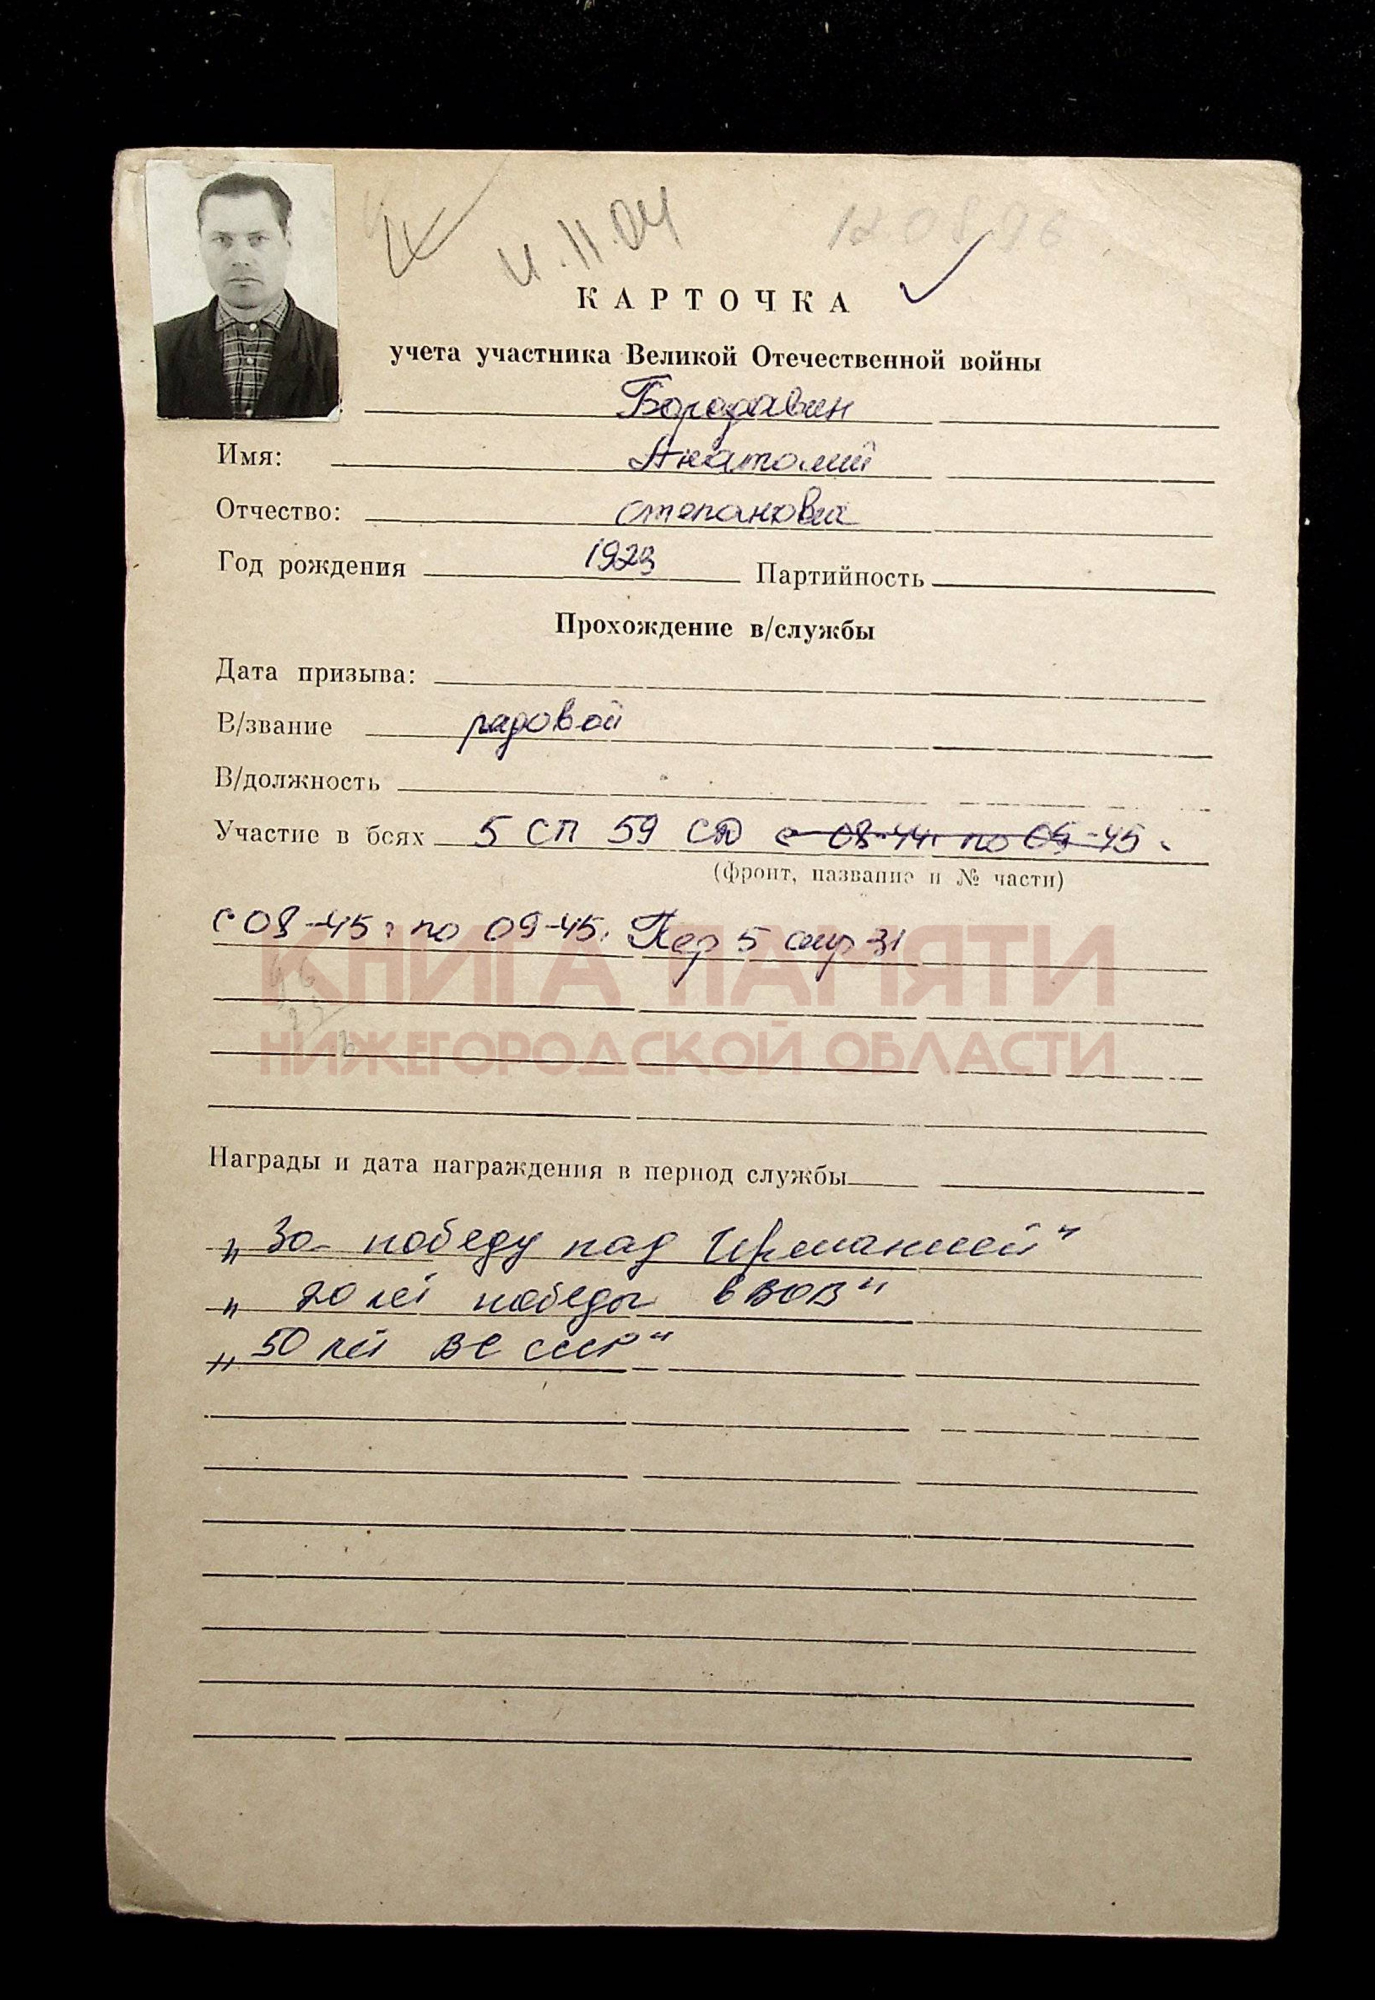 и.11.04
12.08.96
КАРТОЧКА
учета участника Великой Отечественной войны
Бородавин
Имя: Анатолий
Отчество: степанович
Год рождения 1923 Партийность
Прохождение в/службы
Дата призыва:
В/звание рядовой
В/должность
Участие в боях 5 СП 59 СД с 08-44г по 05-45.
(фронт, название и № части)
с 08-45г по 09-45. Пер 5 стр 31
КНИГА ПАМЯТИ
НИЖЕГОРОДСКОЙ ОБЛАСТИ
Награды и дата награждения в период службы
„За победу над Германией"
„20 лет победы в ВОВ"
„50 лет ВС СССР"